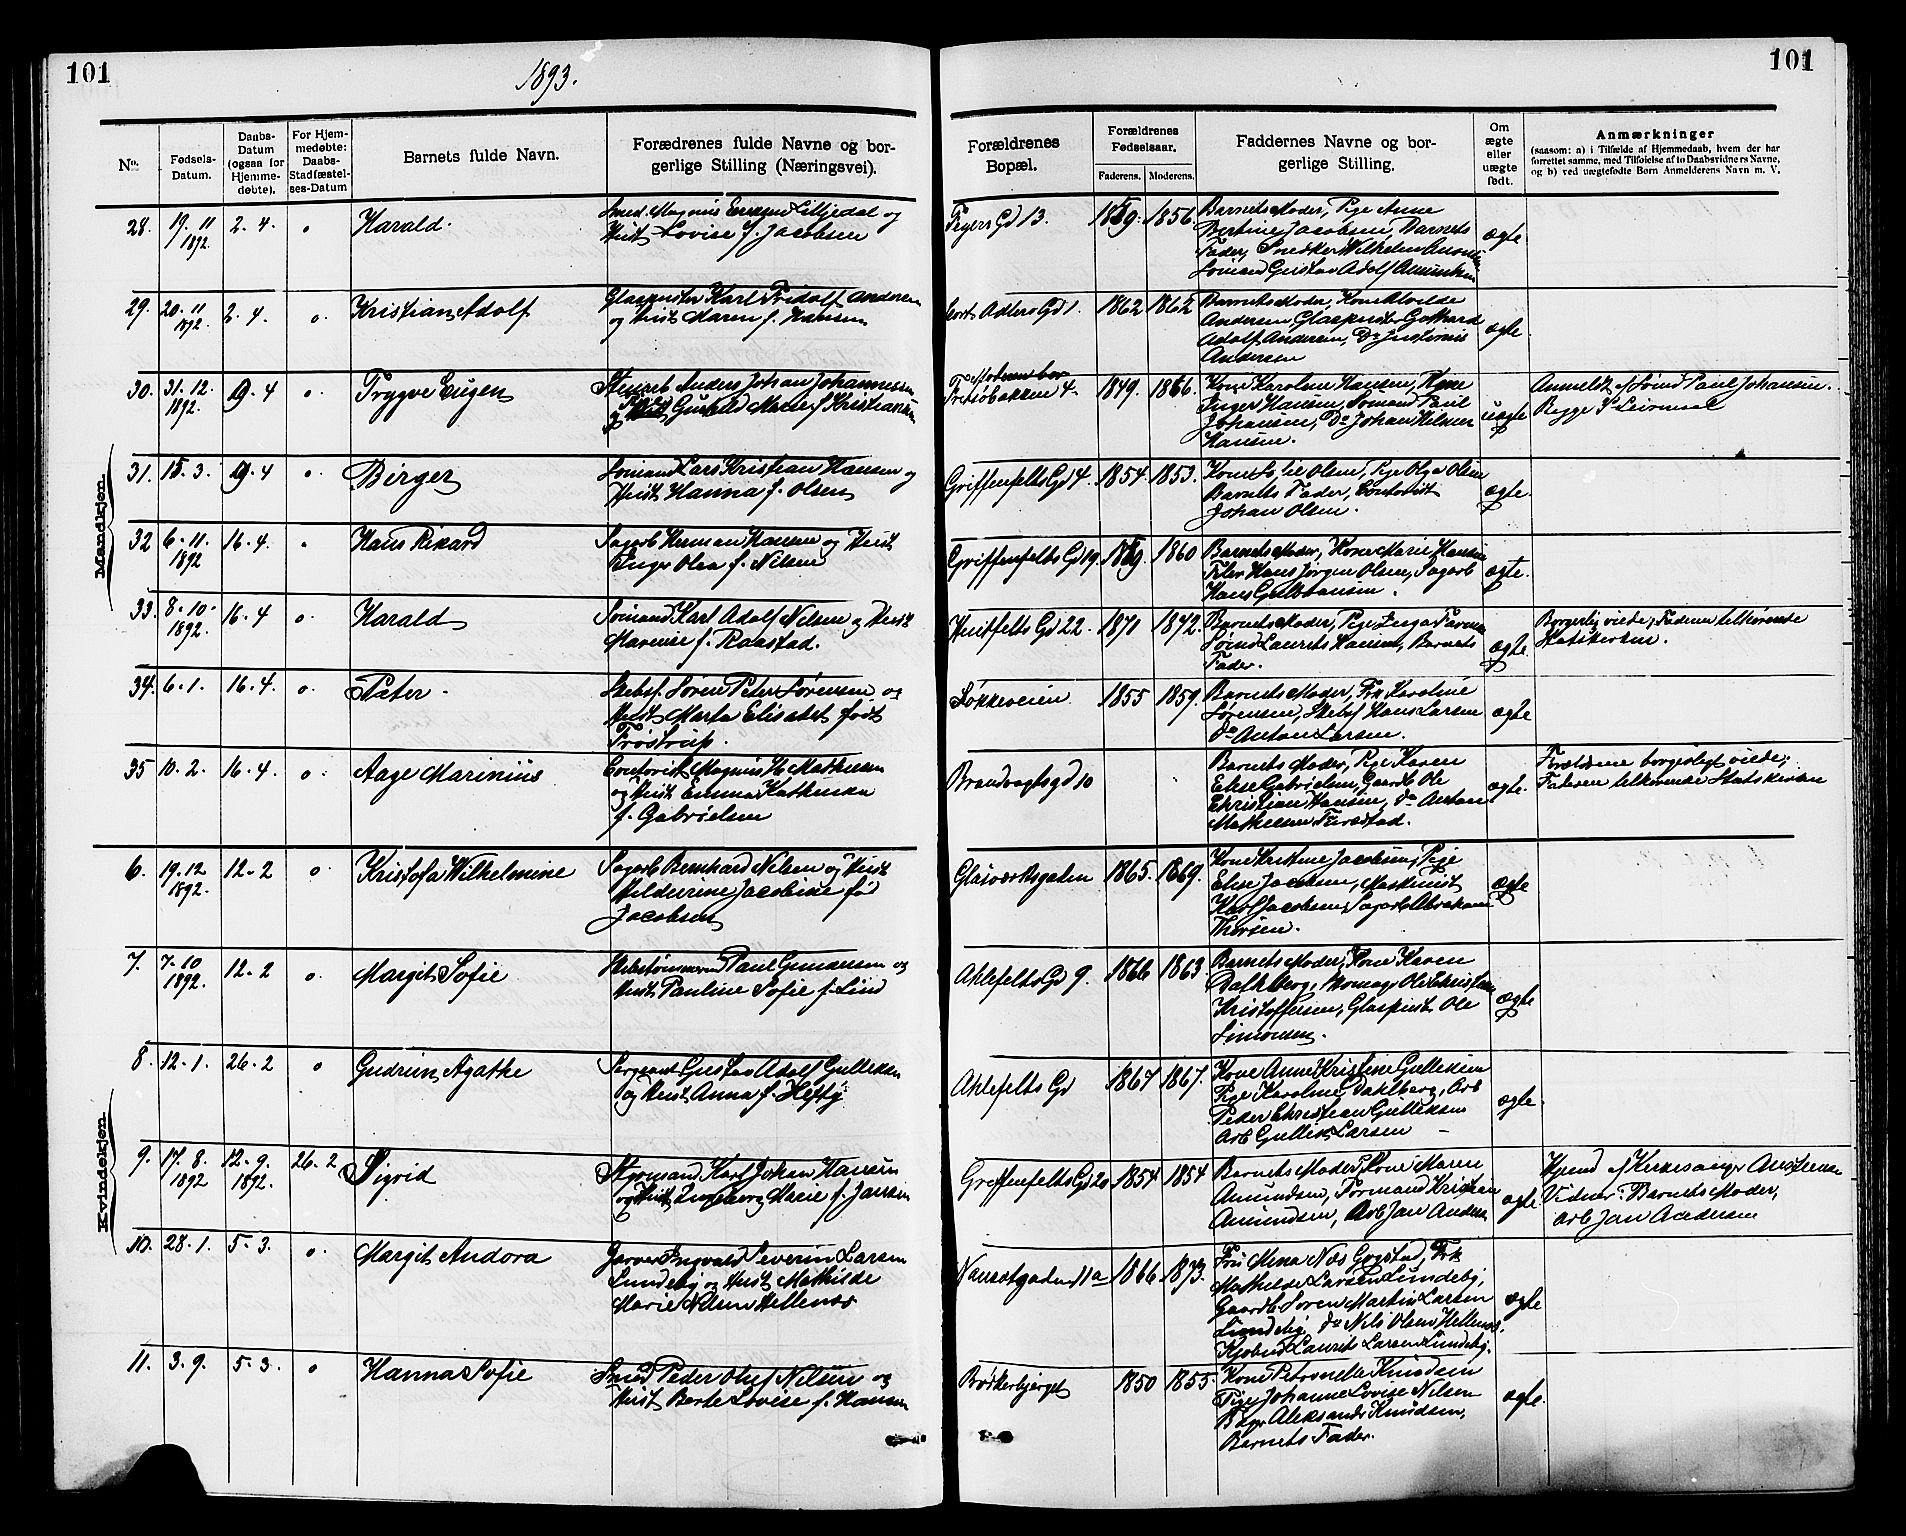 101
1893.
101
No.
Fødsels-Datum.
Daabs-Datum (ogsaa for Hjemmedøbte).
For Hjemmedøbte: Daabs-Stadfæstelses-Datum
Barnets fulde Navn.
Forædrenes fulde Navne og borgerlige Stilling (Næringsvei).
Forældrenes Bopæl.
Forældrenes Fødselsaar.
Faderens.
Moderens.
Faddernes Navne og borgerlige Stilling.
Om ægte eller uægte født.
Anmærkninger
(saasom: a) i Tilfælde af Hjemmedaab, hvem der har forrettet samme, med Tilføielse af to Daabsvidners Navne, og b) ved uægtefødte Børn Anmelderens Navn m. V.
Mandkjøn.
28. 19. 11 1892. 2. 4. o Harald.
Smed Magnus Lilljedal og
Hust Lovise f. Jacobsen
1856.
Barnets Moder, Pige Anne
Bertine Jacobsen, Barnets
Fader, Snedker Wilhelm
Sømand Gustav Adolf Amundsen
ægte
29. 20. 11 1892. 2. 4. o. Kristian Adolf
Glaspuster Karl Fridolf Andersen
og Hust Maren f. Hansen
Cort Adlers Gd 1. 1862 1862
Barnets Moder, Kone Alvilde
Andersen Glaspuster Gotthard
Adolf Andersen, Do
Andersen
ægte
30. 31. 12. 1892. 9. 4 o. Trygve Eugen
Anders Johan Johannessen
Gunhild Marie f. Kristiansen
Moderen bor
4. 1849. 1866.
Kone Karoline Hansen, Kone
Inger Hansen, Sømand Paul
Johansen, Do Johan Hilmer
Hansen.
uægte
Anmeldt af Sømd Paul Johansen.
Begge
31. 15. 3. 9. 4 o. Birger
Sømand Lars Kristian Hansen og
Hust Hanna f. Olsen
Griffenfelts Gd 4. 1854. 1853.
Olsen, Pige Olga Olsen
Barnets Fader, Contorist
Johan Olsen.
ægte.
32 6. 11. 1892 16. 4. Hans Rikard
Sagarb Herman Hansen og Hust
Inger Olea f. Nilsen
Griffenfelts Gd 19. 1860
Barnets Moder, Kone Marie Hansen
Hans Jørgen Olsen, Sagarb
Hans Gulbransen.
ægte.
33. 8. 10. 1892. 16. 4 o. Harald
Sømand Karl Adolf Nilsen og Hust
f. Raastad.
Huitfelts Gd 22. 1871 1872.
Barnets Moder, Pige Inga
Sømd Laurits Hansen, Barnets
Fader.
ægte
Borgerlig viede; Faderen tilhørende
Statskirken.
34. 6. 1. 16. 4. o. Peter.
Skibsf. Søren Peter Sørensen og
Hust Marta Elisabet født
Trøstrup.
Løkkeveien 1855 1859.
Barnets Moder, Frk Karoline
Sørensen, Skibsf Hans Larsen
Do Anton Larsen.
ægte
35 10. 2. 16. 4. o. Aage Marinius
Contorist Magnus H. Mathisen
og Hust Emma Kathinka
f. Gabrielsen
Brandvagtsgd 10
Barnets Moder, Pige Karen
Elise Gabrielsen, Gaardb Ole
Christian Hansen, Do Anton
Mathisen
ægte.
Forældrene borgerligt viede;
Faderen tilhørende Statskirken
Kvindekjøn.
6. 19. 12 1892. 12. 2 o Kristofa Wilhelmine
Sagarb Bernhard Nilsen og Hust
Jacobine fø
Jacobsen
Glasværksgaden 1865. 1869.
Kone Kristine Jacobsen, Pige
Elise Jacobsen, Maskinist
Karl Jacobsen, Sagarb Abraham
Thorsen.
ægte
7. 7. 10 1892. 12. 2 o. Margit Sofie
Skibstømmerm Paul Gundersen og
Hust Pauline Sofie f. Lind
Ahlefelts Gd 9. 1866 1863.
Barnets Moder, Kone Karen
Dahlberg, Ole Christian
Kristoffersen, Glaspust. Ole
Simonsen.
ægte
8. 12. 1. 26. 2 o Gudrun Agathe
Sergeant Gustav Adolf Gulliksen
og Hust Anna f. Hefty
Ahlefelts Gd 1867 1867.
Kone Anne Kristine Gulliksen
Pige Karoline Dahlberg, Arb
Peder Christian Gulliksen
Arb Gullik Larsen
ægte.
9. 17. 8. 1892 12. 9. 1892. 26. 2 Sigrid
Styrmand Karl Johan Hansen
og Hust Ingeborg Marie f. Jansen
Griffenfelts Gd 20 1854 1854
Barnets Moder, Kone Maren
Amundsen, Formand Kristian
Amundsen, Arb Jan Andersen
ægte
Hjemd af Kirkesanger
Vidner: Barnets Moder,
Arb Jan Andersen
10. 28. 1. 5. 3. o. Margit Andora
Garver Ingvald Severin Larsen
Lundeby og Hust Mathilde
Marie Nilsen Hellenæs
11a 1866 1873.
Fru Mina Næs Gogstad, Frk
Mathilde Larsen Lundeby,
Gaardb. Søren Martin Larsen
Lundeby, Do Nils Olsen Hellenæs.
Laurits Larsen Lundeby.
ægte
11. 3. 9. 5. 3. o Hanna Sofie
Smed Peder Oluf Nilsen og
Hust Berte Lovise f. Hansen
Bødkerbjerget 1850 1855
Kone Petronelle Knudsen
Pige Johanne Lovise Nilsen
Aleksander Knudsen,
Barnets Fader.
ægte.